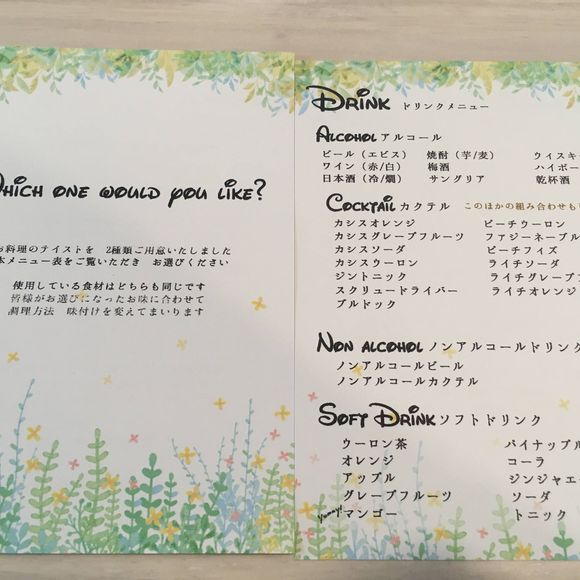 Which one would you like?
お料理のテイストを　2種類ご用意いたしました
本メニュー表をご覧いただき　お選びください
使用している食材はどちらも同じです
皆様がお選びになったお味に合わせて
調理方法　味付けを変えてまいります
Drink ドリンクメニュー
Alcohol アルコール
ビール（エビス）　焼酎（芋/麦）　ウィスキ
ワイン（赤/白）　梅酒　ハイボー
日本酒（冷/燗）　サングリア　乾杯酒
Cocktail カクテル　このほかの組み合わせも
カシスオレンジ　ピーチウーロン
カシスグレープフルーツ　ファジーネーブル
カシスソーダ　ピーチフィズ
カシスウーロン　ライチソーダ
ジントニック　ライチグレープフ
スクリュードライバー　ライチオレンジ
ブルドック
Non alcohol ノンアルコールドリンク
ノンアルコールビール
ノンアルコールカクテル
Soft Drink ソフトドリンク
ウーロン茶　パイナップル
オレンジ　コーラ
アップル　ジンジャエー
グレープフルーツ　ソーダ
マンゴー　トニック
yummy!